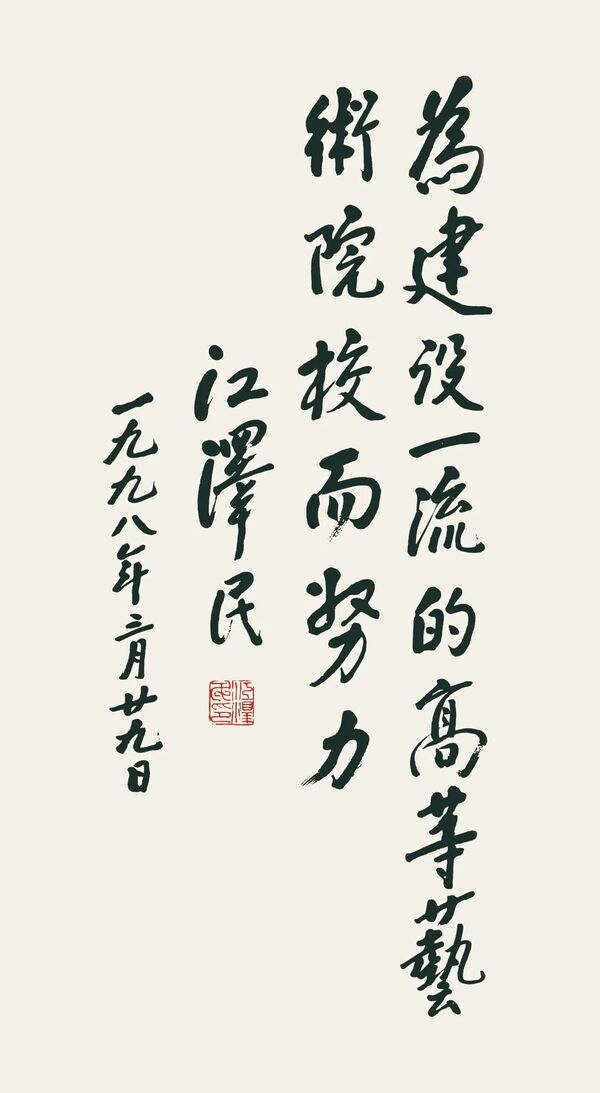 為建设一流的高等藝
術院校而努力
江澤民
一九九八年三月廿九日
江澤民印